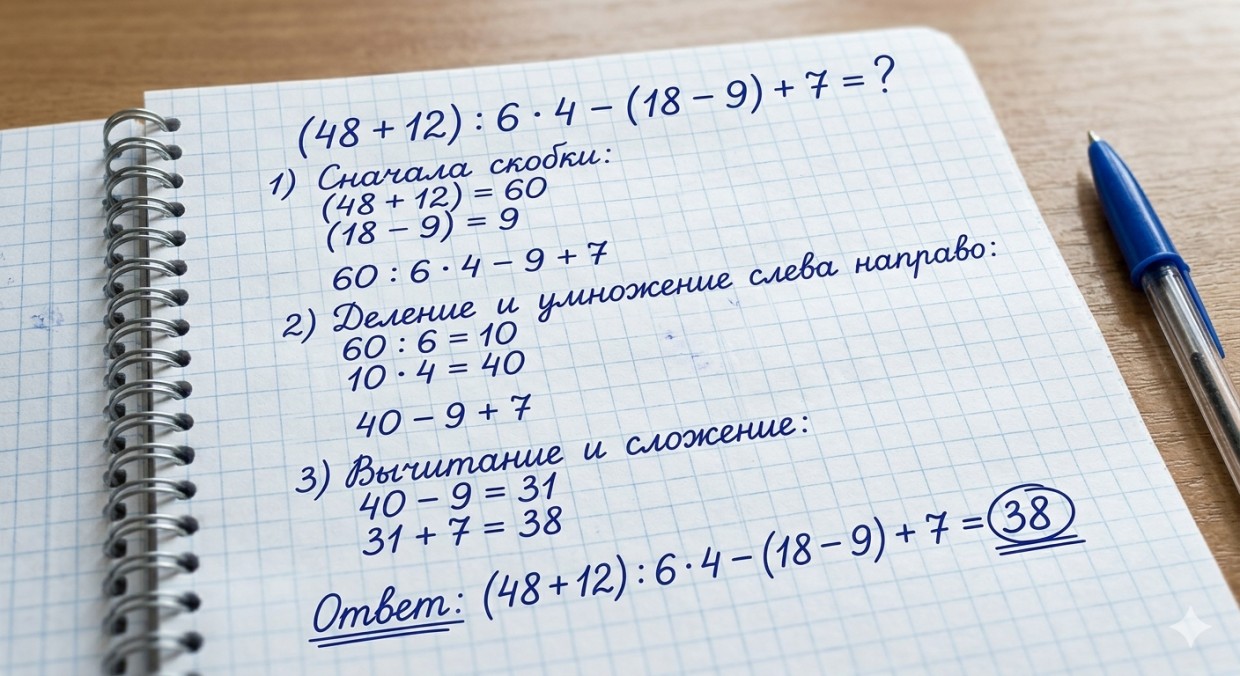 (48 + 12) : 6 · 4 − (18 − 9) + 7 = ?
1) Сначала скобки:
(48 + 12) = 60
(18 − 9) = 9
60 : 6 · 4 − 9 + 7
2) Деление и умножение слева направо:
60 : 6 = 10
10 · 4 = 40
40 − 9 + 7
3) Вычитание и сложение:
40 − 9 = 31
31 + 7 = 38
Ответ: (48 + 12) : 6 · 4 − (18 − 9) + 7 = 38